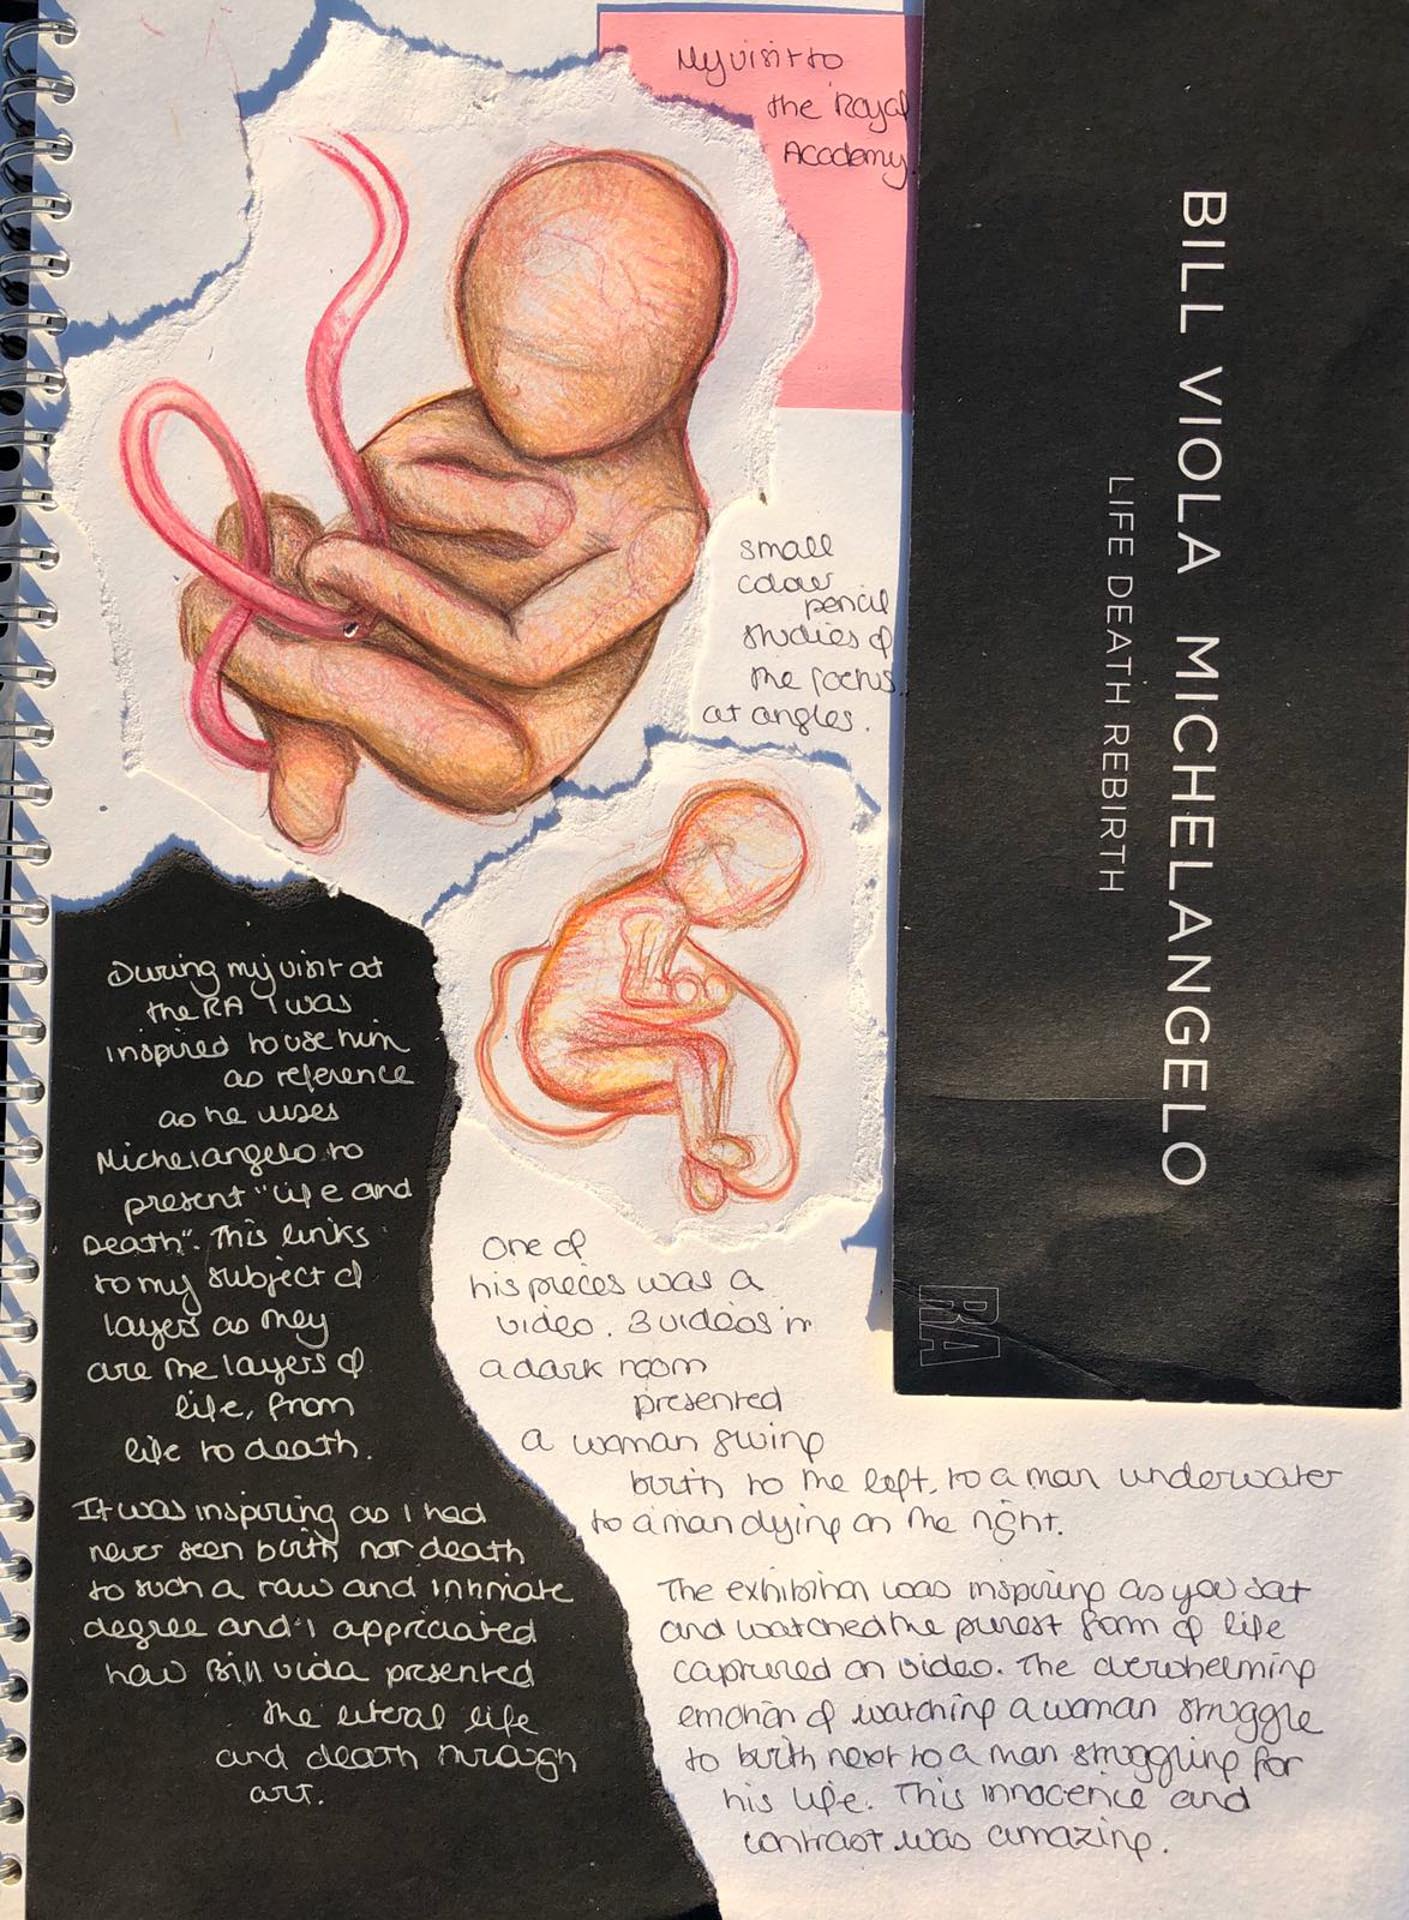 My visit to
the Royal
Academy.
BILL VIOLA MICHELANGELO
LIFE DEATH REBIRTH
RA
small
colour
pencil
studies of
the foetus
at angles.
During my visit at
the RA I was
inspired to use him
as reference
as he uses
Michelangelo to
present "life and
Death". This links
to my subject of
layers as they
are the layers of
life, from
life to death.
It was inspiring as I had
never seen birth nor death
to such a raw and intimate
degree and I appriciated
how Bill Viola presented
the literal life
and death through
art.
One of
his pieces was a
video. 3 videos in
a dark room
presented
a woman giving
birth to the left, to a man underwater
to a man dying on the right.
The exhibition was inspiring as you sat
and watched the purest form of life
captured on video. The overwhelming
emotion of watching a woman struggle
to birth next to a man struggling for
his life. This innocence and
contrast was amazing.